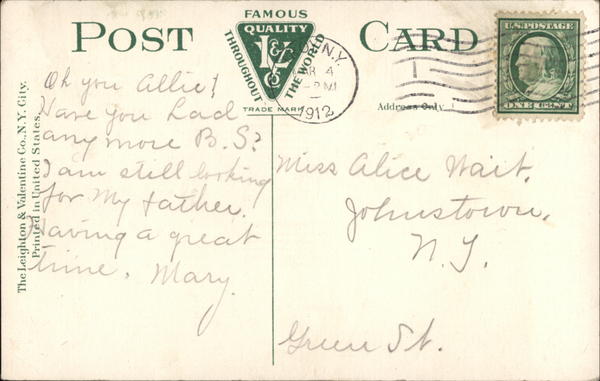 POST CARD
FAMOUS
QUALITY
THROUGHOUT THE WORLD
L & V Co
TRADE MARK
N.Y.
MAR 4
PM
1912
U.S. POSTAGE
ONE CENT
Address Only
Oh you Allie!
Have you had
any more B.S?
I am still looking
for My father.
Having a great
time. Mary.
Miss Alice Wait.
Johnstown,
N.Y.
Green St.
The Leighton & Valentine Co., N.Y. City.
Printed in United States.